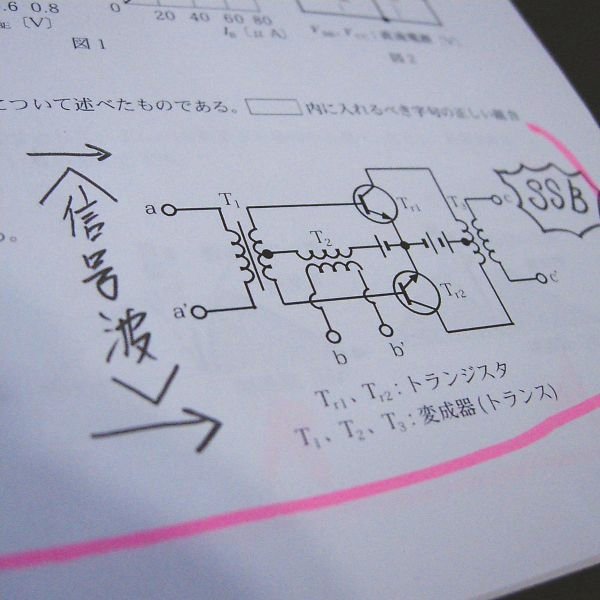 .6 0.8
0 20 40 60 80
〔V〕
I_B〔μA〕
図1
図2
について述べたものである。□内に入れるべき字句の正しい組合
信号波
a
a'
T1
T2
Tr1
Tr2
b
b'
c
c'
SSB
Tr1、Tr2：トランジスタ
T1、T2、T3：変成器(トランス)